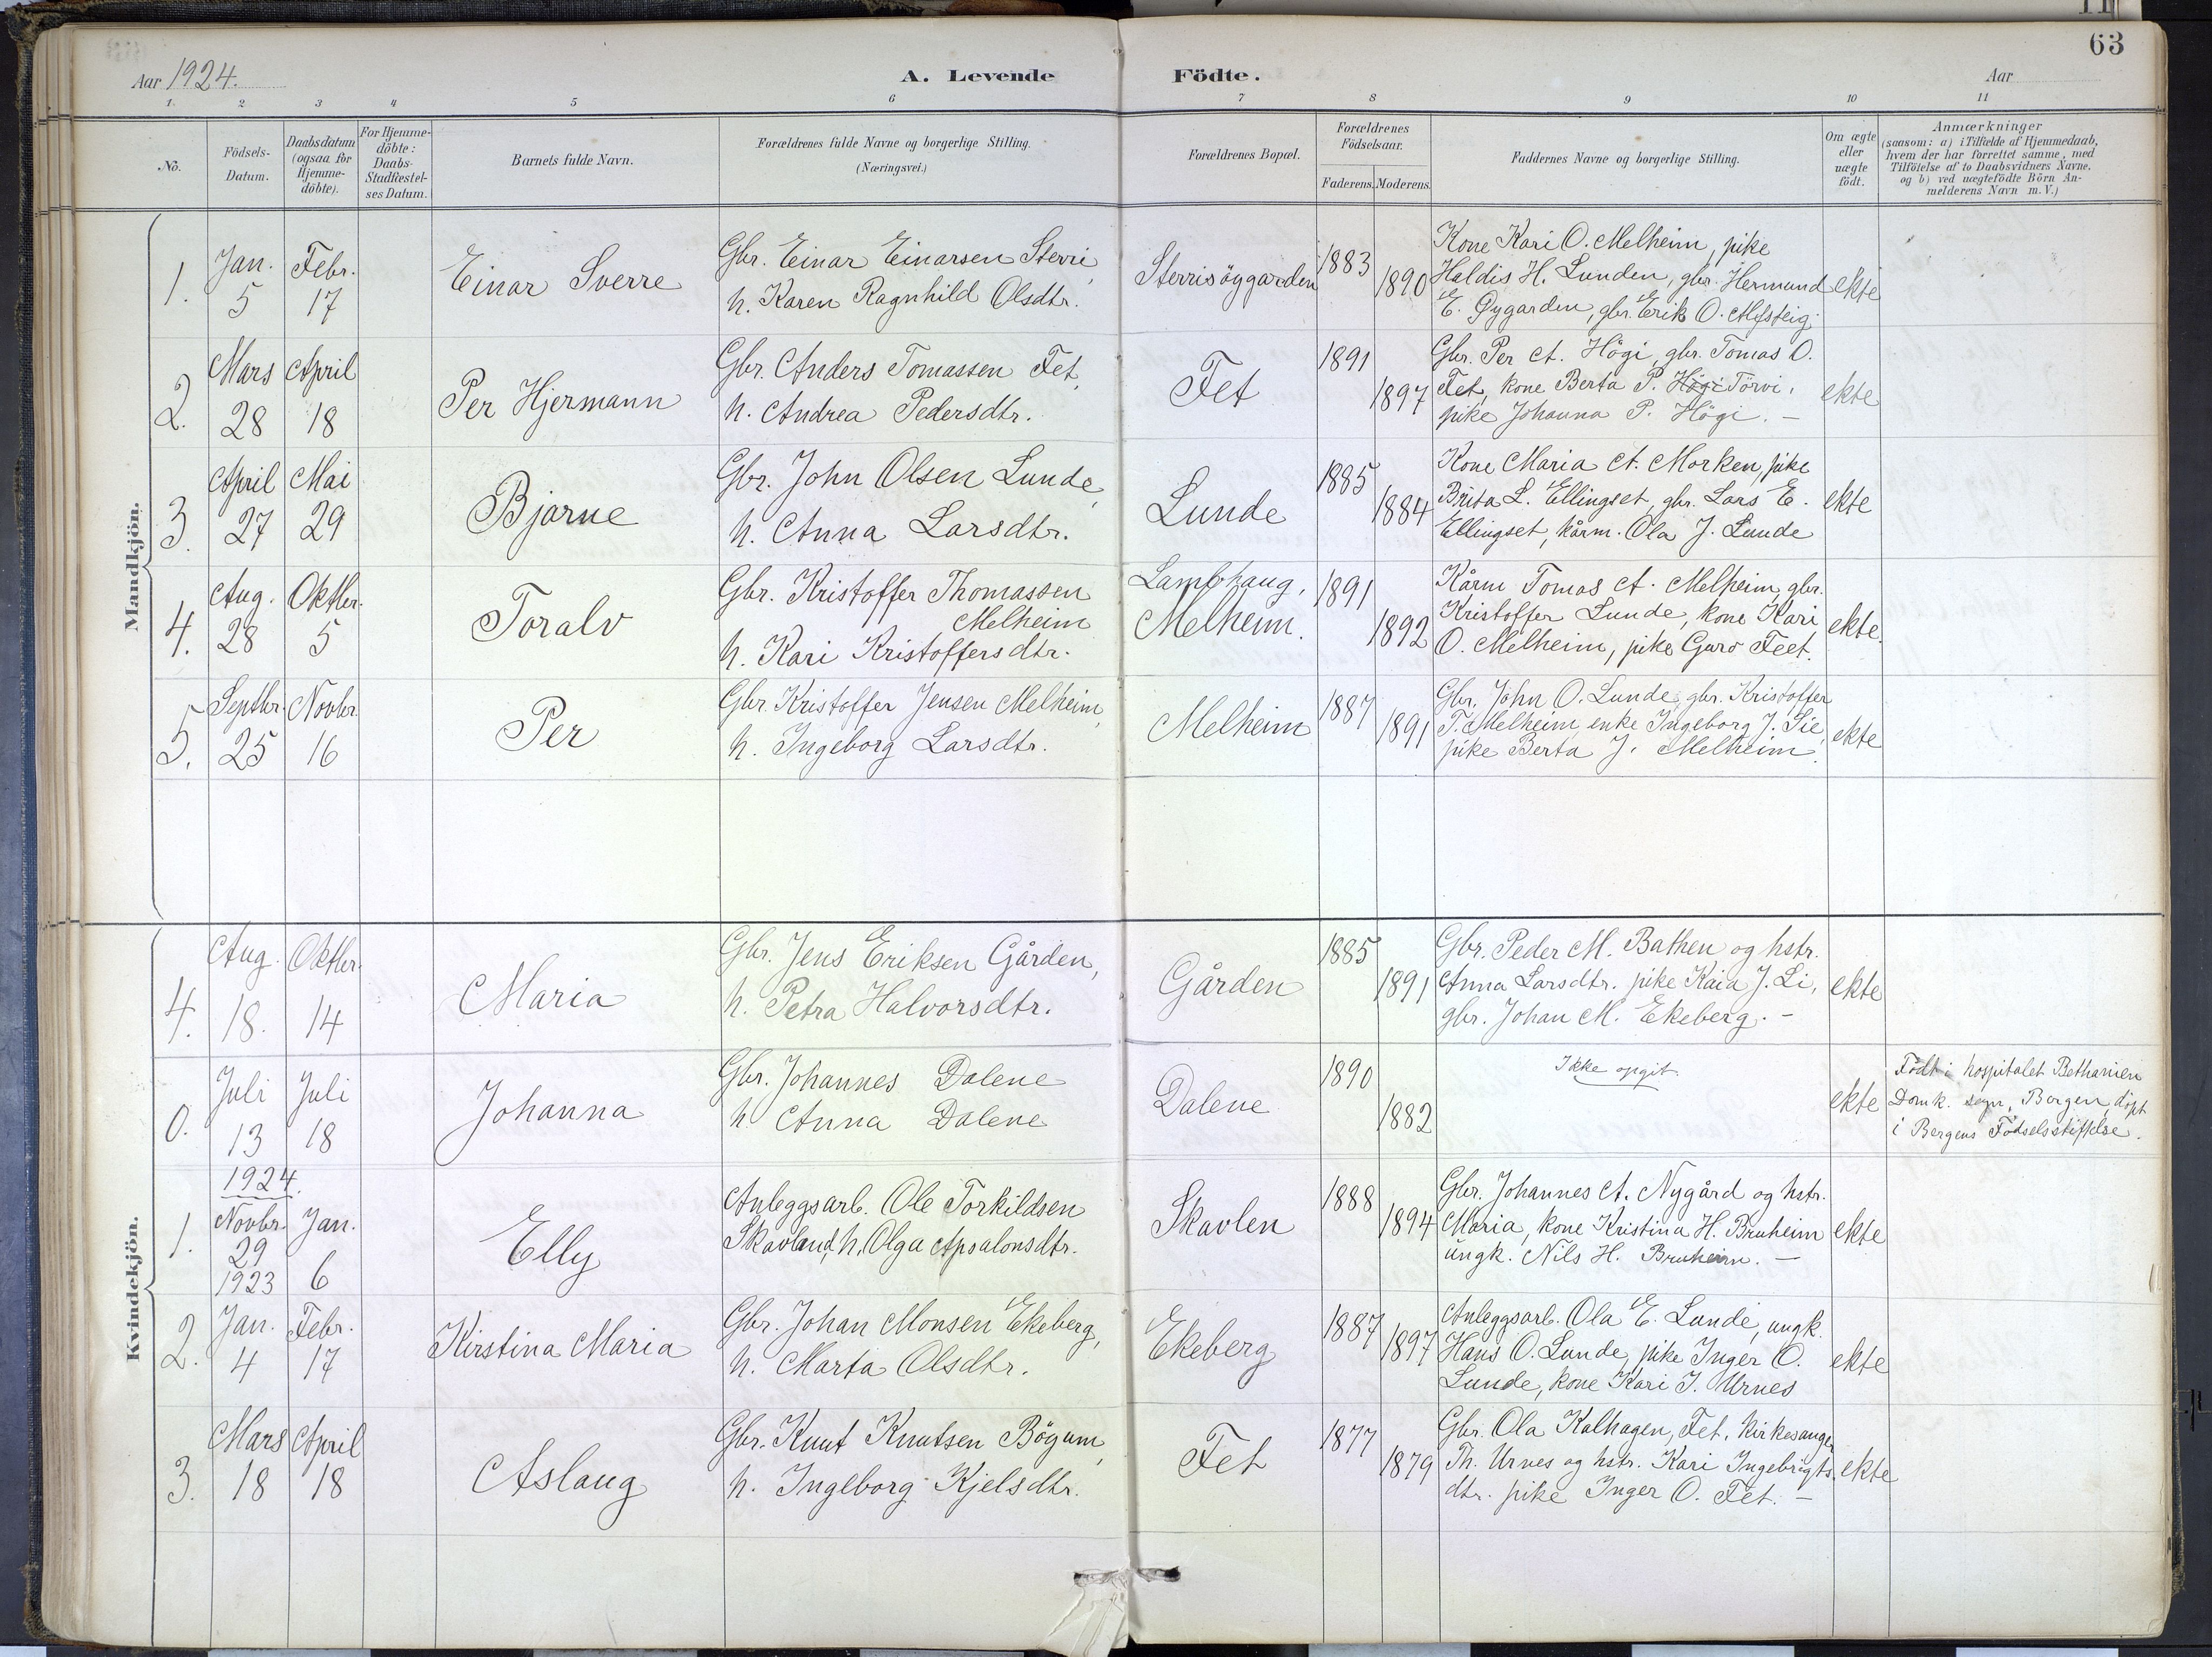 63
Aar 1924.
A. Levende Födte.
Aar
1 2 3 4 5 6 7 8 9 10 11
No.
Födsels-
Datum.
Daabsdatum
(ogsaa for
Hjemme-
döbte).
For Hjemme-
döbte:
Daabs-
Stadfæstel-
ses Datum.
Barnets fulde Navn.
Forældrenes fulde Navne og borgerlige Stilling.
(Næringsvei.)
Forældrenes Bopæl.
Forældrenes
Födselsaar.
Faderens. Moderens.
Faddernes Navne og borgerlige Stilling.
Om ægte
eller
uægte
födt.
Anmærkninger
(saasom: a) i Tilfælde af Hjemmedaab,
hvem der har forrettet samme, med
Tilföielse af to Daabsvidners Navne,
og b) ved uægtefödte Börn An-
melderens Navn m. V.)
Mandkjön.
1.
Jan.
5
Febr.
17
Einar Sverre
Gbr. Einar Einarsen Sterri,
h. Karen Ragnhild Olsdtr.
Sterrisöygarden
1883
1890
Kone Kari O. Melheim, pike
Haldis H. Lunden, gbr. Hermund
E. Øygarden, gbr. Erik O. Melsteig.
ekte
2.
Mars
28
April
18
Per Hjermann
Gbr. Anders Tomassen Fet,
h. Andrea Pedersdtr.
Fet
1891
1897
Gbr. Per A. Högi, gbr. Tomas O.
Fet, kone Berta P. Högi Törvi,
pike Johanna P. Högi. –
ekte
3.
April
27
Mai
29
Bjarne
Gbr. John Olsen Lunde,
h. Anna Larsdtr.
Lunde
1885
1884
Kone Maria A. Morken, pike
Brita L. Ellingset, gbr. Lars E.
Ellingset, kårm. Ola J. Lunde
ekte
4.
Aug.
28
Oktbr.
5
Toralv
Gbr. Kristoffer Thomassen
Melheim
h. Kari Kristoffersdtr.
Lambhaug,
Melheim.
1891
1892
Kårm Tomas A. Melheim, gbr.
Kristoffer Lunde, kone Kari
O. Melheim, pike Guro Feet.
ekte.
5.
Septbr.
25
Novbr.
16
Per
Gbr. Kristoffer Jensen Melheim,
h. Ingeborg Larsdtr.
Melheim
1887
1891
Gbr. John O. Lunde, gbr. Kristoffer
T. Melheim, enke Ingeborg J. Lie,
pike Berta J. Melheim.
ekte
Kvindekjön.
4.
Aug.
18.
Oktbr.
14
Maria
Gbr. Jens Eriksen Gården,
h. Petra Halvorsdtr.
Gården
1885
1891
Gbr. Peder M. Bathen og hstr.
Anna Larsdtr. pike Kaia J. Li,
gbr. Johan M. Ekeberg. –
ekte
0.
Juli
13
Juli
18
Johanna
Gbr. Johannes Dalene
h. Anna Dalene
Dalene
1890
1882
Ikke opgit.
ekte
Födt i hospitalet Bethanien
Domk. segn, Bergen, döpt
i Bergens Födselsstiftelse.
1.
1924.
Novbr.
29
1923
Jan.
6
Elly
Anleggsarb. Ole Torkildsen
Skavland, h. Olga Apsalonsdtr.
Skavlen
1888
1894
Gbr. Johannes A. Nygård og hstr.
Maria, kone Kristina H. Bruheim
ungk. Nils H. Bruheim. –
ekte
2.
Jan.
4
Febr.
17
Kirstina Maria
Gbr. Johan Monsen Ekeberg,
h. Marta Olsdtr.
Ekeberg
1887
1897
Anleggsarb. Ola E. Lunde, ungk.
Hans O. Lunde, pike Inger O.
Lunde, kone Kari J. Urnes
ekte
3.
Mars
18
April
18
Aslaug
Gbr. Knut Knutsen Bögum,
h. Ingeborg Kjelsdtr.
Fet
1877
1879
Gbr. Ola Kalhagen, Fet, kirkesanger
Th. Urnes og hstr. Kari Ingebrigts
dtr. pike Inger O. Fet. –
ekte